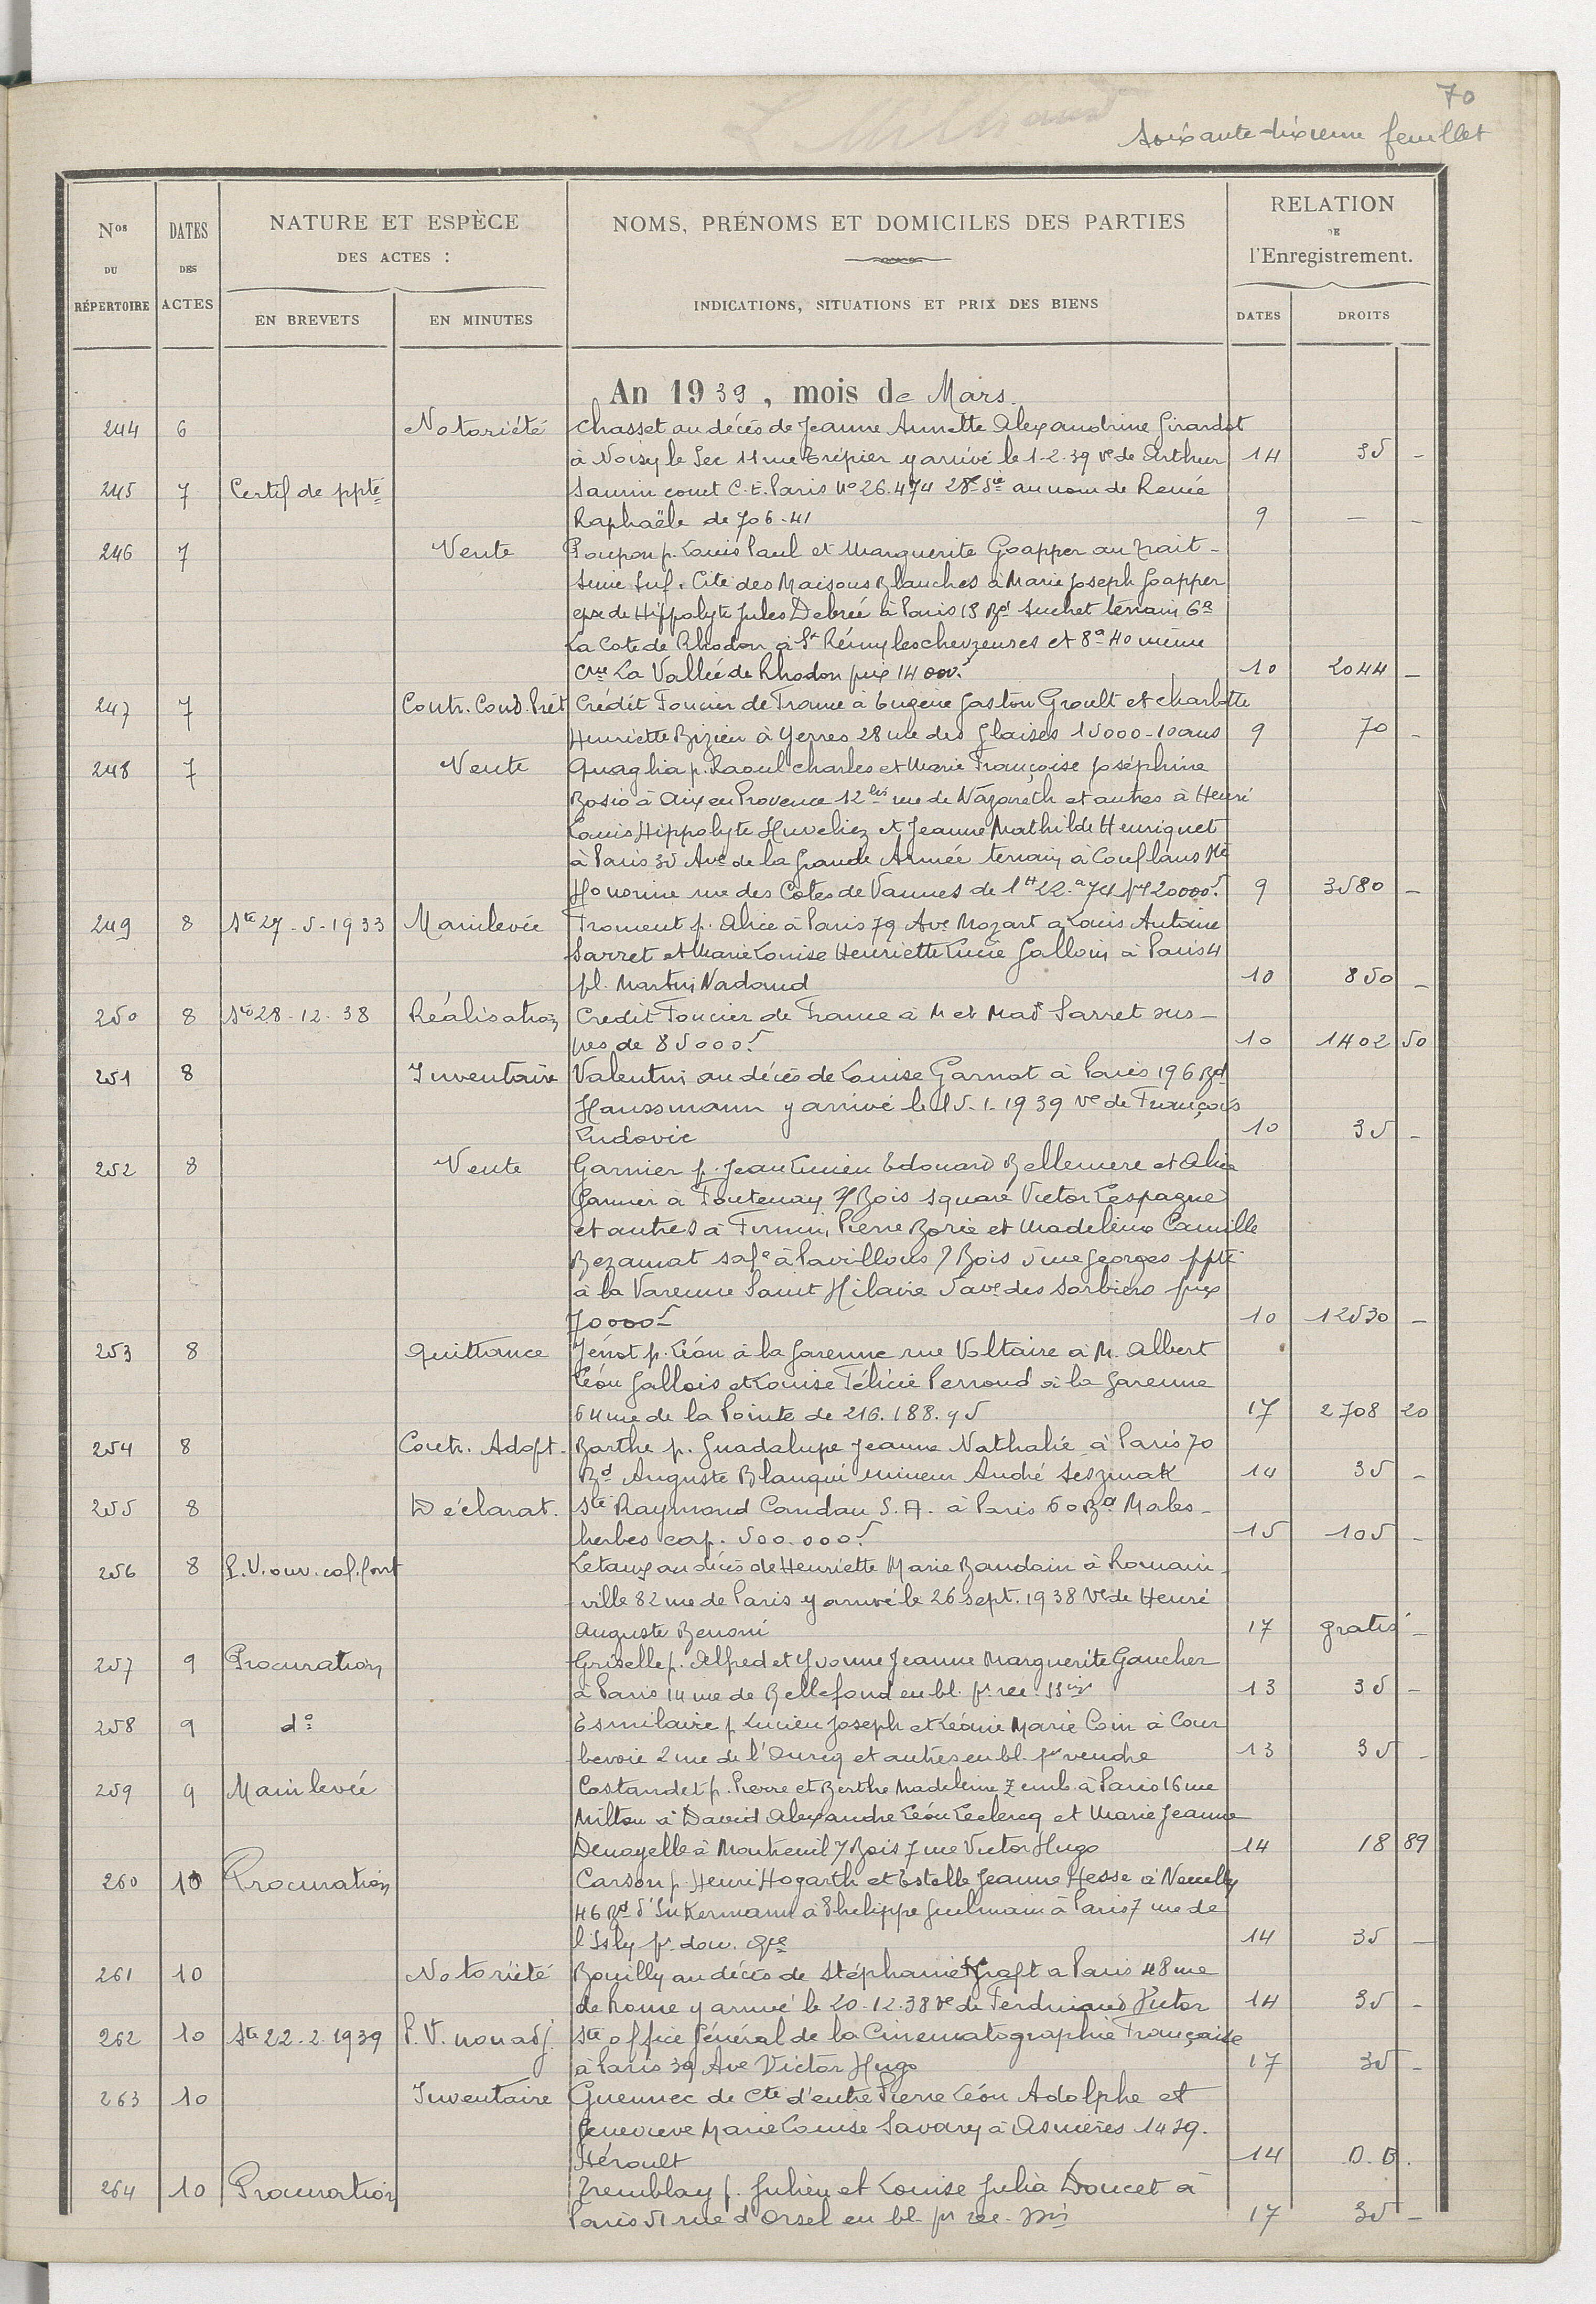 70
soixante-dixième feuillet
Nos DU RÉPERTOIRE
DATES DES ACTES
NATURE ET ESPÈCE
DES ACTES :
EN BREVETS
EN MINUTES
NOMS, PRÉNOMS ET DOMICILES DES PARTIES
INDICATIONS, SITUATIONS ET PRIX DES BIENS
RELATION
DE
l'Enregistrement.
DATES
DROITS
An 1939, mois de Mars.
244 6 Notoriété Chasset au décès de Jeanne Annette Alexandrine Girardot
à Noisy le Sec 11 rue Trépier y arrivé le 1-2-39 ve de Arthur 14 35 -
245 7 Certif de ppté Saunin conct C.E. Paris No 26.474 28e Sie au nom de Renée
Raphaële de 706-41 9 — -
246 7 Vente Poupon p. Louis Paul et Marguerite Goapper au
Cité des Maisons Blanches à Marie Joseph Goapper
epse de Hippolyte Jules Debrée à Paris 18 Bd Suchet terrain 6a
La Cote de Rhodon à St Rémy les chevreuses et 8a 40 même
Cne La Vallée de Rhodon prix 14 000f 10 2044 -
247 7 Contr. Cond. Prêt Crédit Foncier de France à Eugène Gaston Groult et Charlotte
Henriette Bizien à Yerres 28 rue des Glaises 15000-10 ans 9 70 -
248 7 Vente Quaglia p. Raoul Charles et Marie Françoise Joséphine
Bosio à Aix en Provence 12 bis rue de Nazareth et autres à Henri
Louis Hippolyte Huveliez et Jeanne Mathilde Henriquet
à Paris 35 Ave de la Grande Armée terrain à Conflans Ste
Honorine rue des Cotes de Vannes de 1H 22a 74 px 20000f. 9 3580 -
249 8 Ste 27-5-1933 Mainlevée Froment p. Alice à Paris 79 Ave Mozart à Louis Antoine
Sarret et Marie Louise Henriette Lucie Gallois à Paris 4
pl. Martin Nadaud 10 850 -
250 8 Ste 28-12-38 Réalisation Crédit Foncier de France à M et Made Sarret sus-
nes de 85000f. 10 1402 50
251 8 Inventaire Valentin au décès de Louise Garnot à Paris 196 Bd
Haussmann y arrivé le 15-1-1939 ve de François
Ludovic 10 35 -
252 8 Vente Garnier p. Jean Lucien Edouard Bellemere et Alice
Garnier à Fontenay s/ Bois square Victor Lespagne
et autres à Firmin Pierre Borie et Madeleine Camille
Bezamat sa fe à Pavillons s/ Bois 5 rue Georges ppté
à la Varenne Saint Hilaire 5 ave des Sorbiers prix
70000f 10 12530 -
253 8 Quittance Jénot p. Léon à la Garenne rue Voltaire à M. Albert
Léon Gallois et Louise Félicie Perroud à la Garenne
64 rue de la Pointe de 216.188.95 17 2708 20
254 8 Contr. Adopt. Barthe p. Guadalupe Jeanne Nathalie à Paris 70
Bd Auguste Blanqui mineur André Seszmak 14 35 -
255 8 Déclarat. Sté Raymond Candau S.A. à Paris 60 Bd Males-
herbes cap. 500.000f. 15 105 -
256 8 P.V. ouv. cof. fort Letaux au décès de Henriette Marie Baudoin à Romain-
ville 82 rue de Paris y arrivé le 26 sept. 1938 Ve de Henri
Auguste Benoni 17 gratis -
257 9 Procuration Griselle p. Alfred et Yvonne Jeanne Marguerite Gaucher
à Paris 14 rue de Bellefond en bl. pr rec. ssion 13 35 -
258 9 do Esmilaire p. Lucien Joseph et Léonie Marie Coin à Cour
bevoie 2 rue de l'Ourcq et autres en bl. pr vendre 13 35 -
259 9 Mainlevée Costandet p. Pierre et Berthe Madeleine Zemb à Paris 16 rue
Milton à David Alexandre Léon Leclercq et Marie Jeanne
Denayelle à Montreuil s/ Bois 7 rue Victor Hugo 14 18 89
260 10 Procuration Carson p. Henri Hogarth et Estelle Jeanne Hesse à Neuilly
46 Bd d'Inkermann à Philippe Guilmain à Paris 7 rue de
l'Isly pr don. 14 35 -
261 10 Notoriété Bouilly au décès de Stéphanie Kraft à Paris 48 rue
de Rome y arrivé le 20-12-38 ve de Ferdinand Victor 14 35 -
262 10 Ste 22-2-1939 P.V. non adj. Sté office Général de la Cinematographie Française
à Paris 39 Ave Victor Hugo 17 35 -
263 10 Inventaire Guennec de Cté d'entre Pierre Léon Adolphe et
Genevieve Marie Louise Savary à Asnières 14 29.
Hérault 14 D.B.
264 10 Procuration Tremblay p. Julien et Louise Julia Doucet à
Paris 51 rue d'Orsel en bl. pr rec. 17 35 -